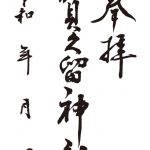 奉拝
賀久留神社
令和 年 月 日